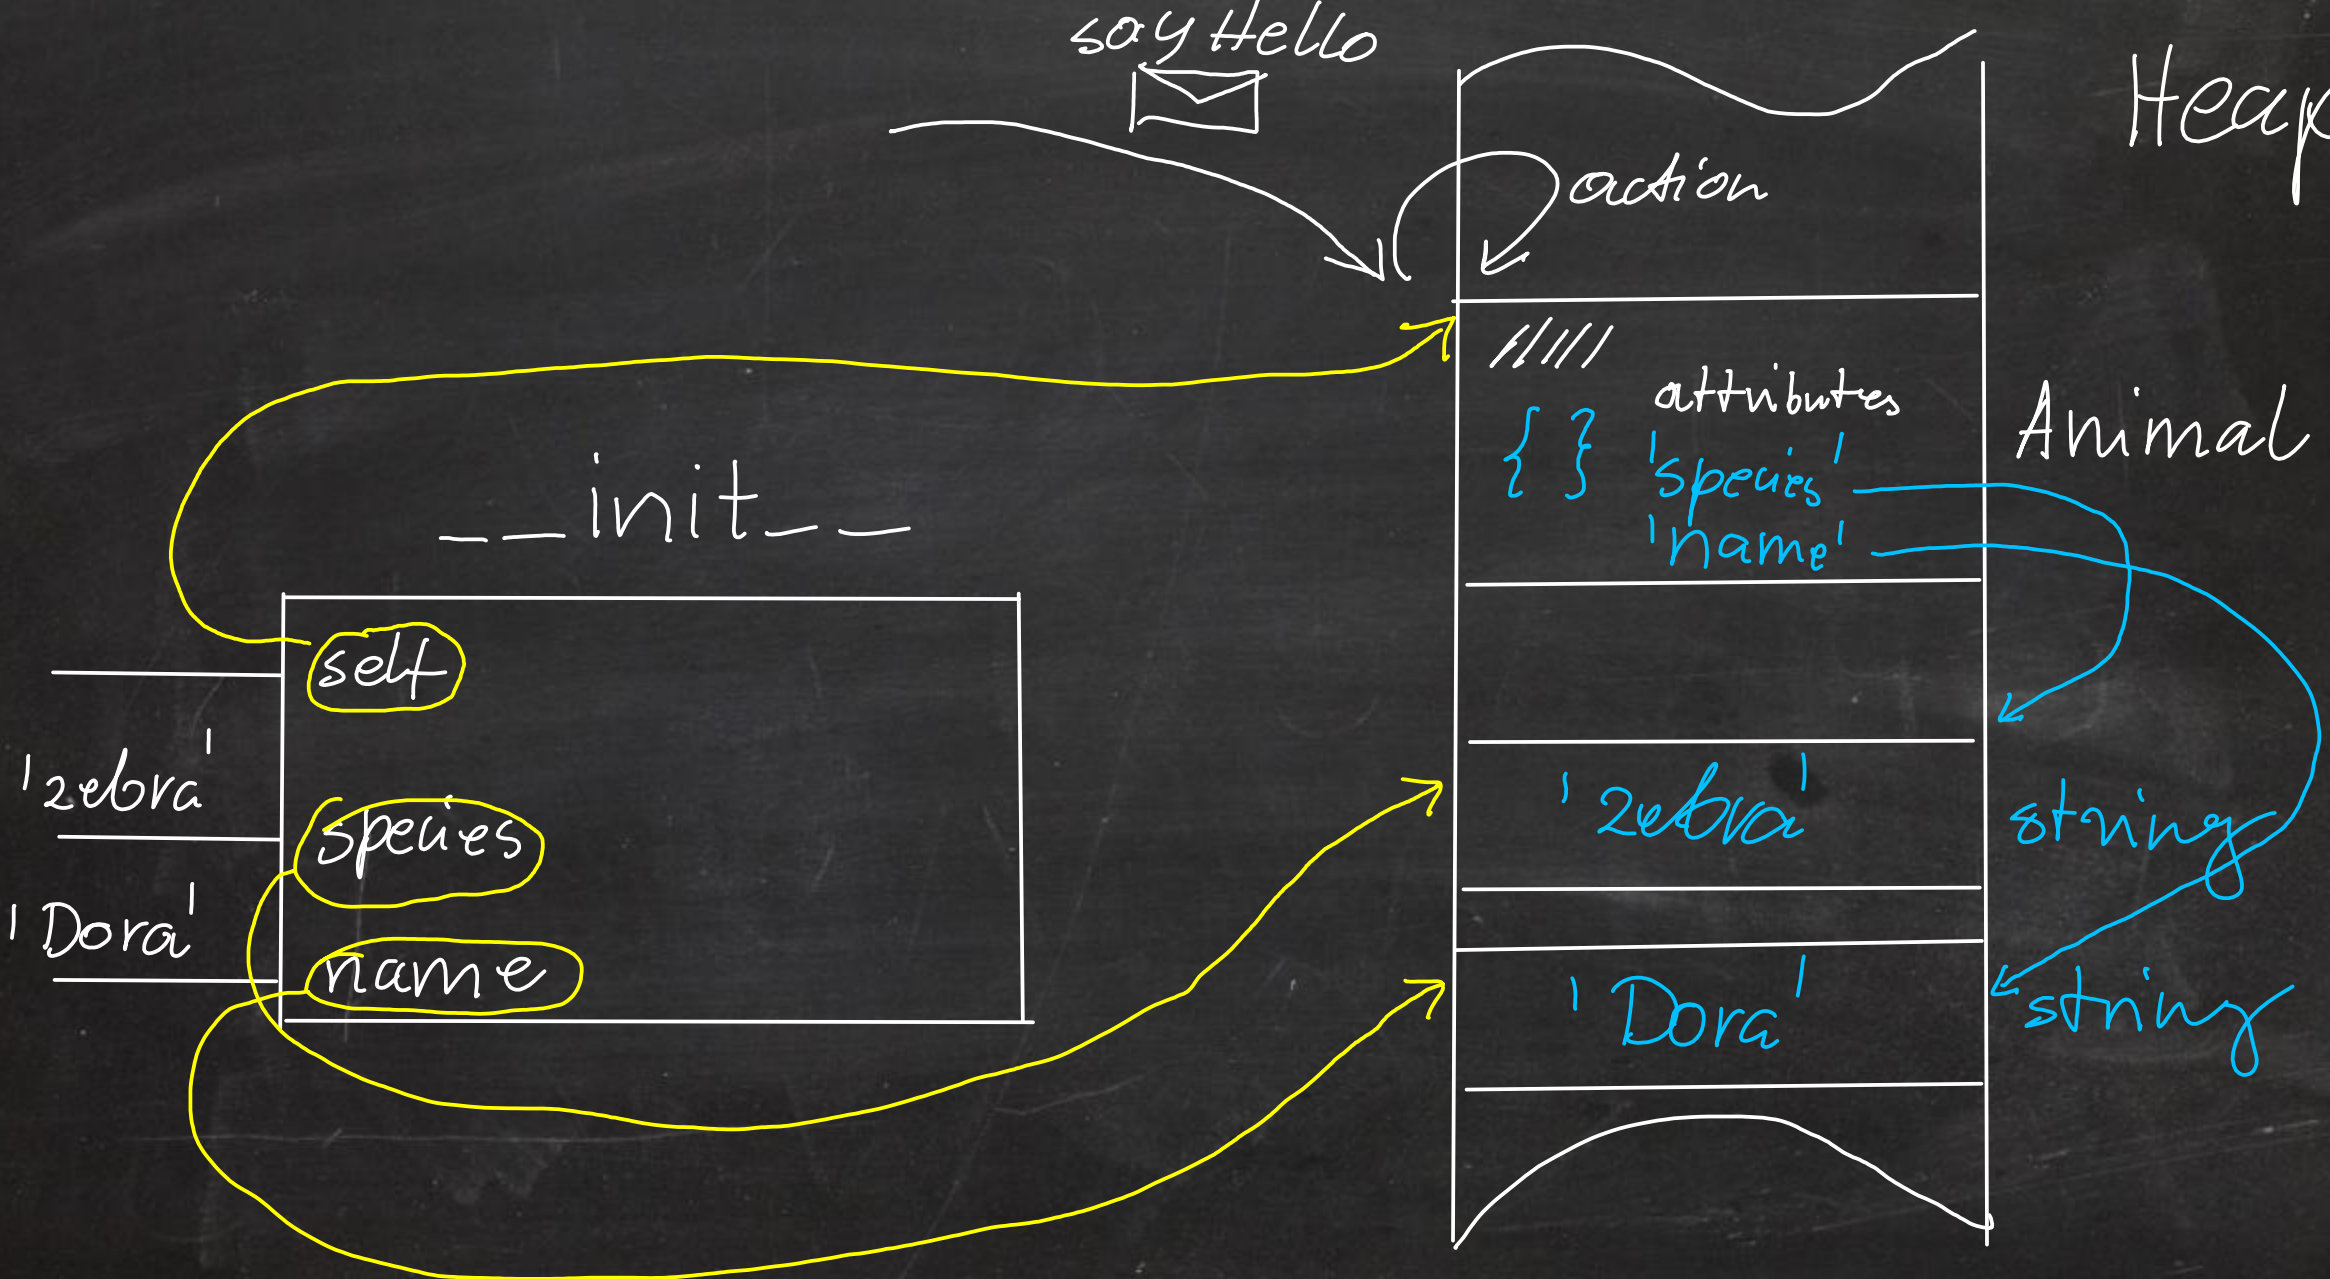 say Hello
Heap
action
attributes
Animal
{ } 'species'
'name'
__init__
self
'zebra'
species
'Dora'
name
'zebra'
string
'Dora'
string